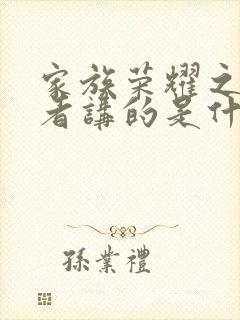 家族荣耀之
者講的是什
孫業禮